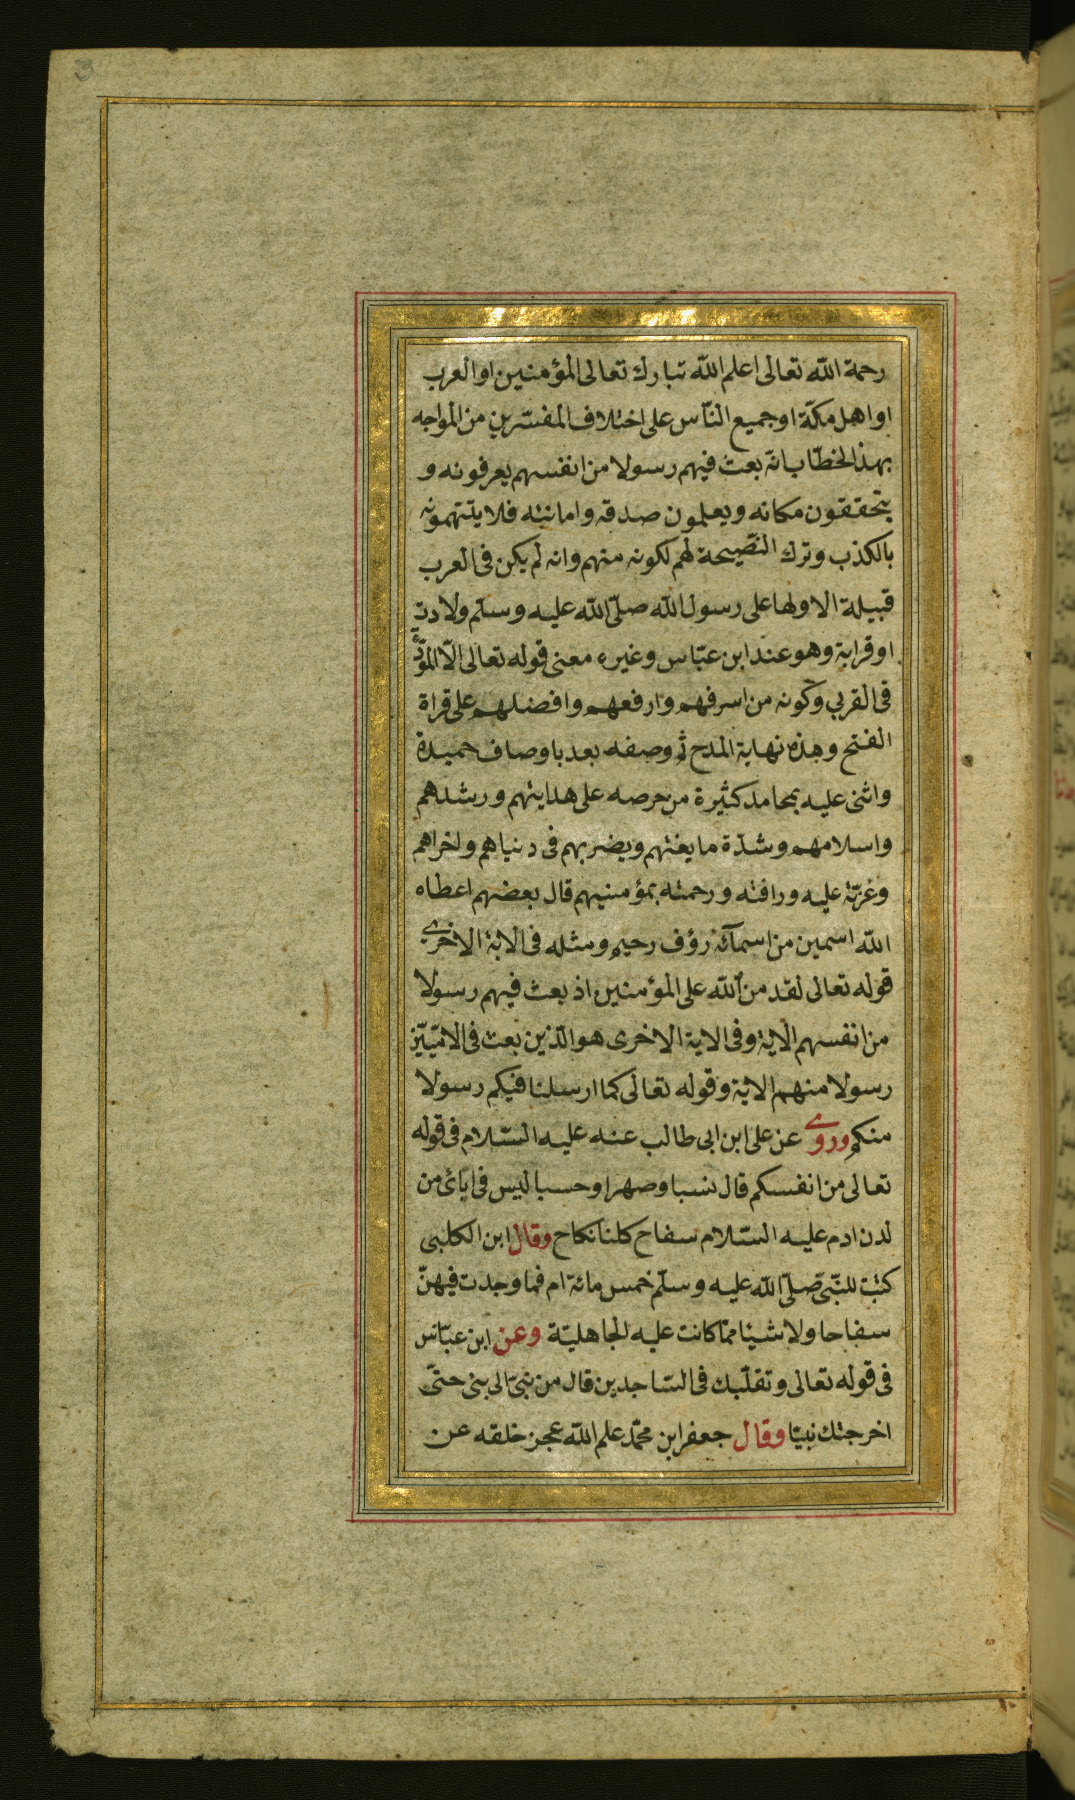 3
رحمة الله تعالى اعلم الله تبارك تعالى المؤمنين او العرب
او اهل مكّة او جميع النّاس على اختلاف المفسّرين من المواجه
بهذا الخطاب انه بعث فيهم رسولا من انفسهم يعرفونه و
يتحققون مكانه ويعلمون صدقه وامانته فلا يتتهمونه
بالكذب وترك النّصيحة لهم لكونه منهم وانه لم يكن فى العرب
قبيلة الا ولها على رسول الله صلّى الله عليه وسلّم ولادة
او قرابة وهو عند ابن عبّاس وغيره معنى قوله تعالى الّا المودّة
فى القربى وكونه من اسرفهم وارفعهم وافضلهم على قراة
الفتح وهذه نهاية المدح ثم وصفه بعد باوصاف حميدة
واثنى عليه بمحامد كثيرة من حرصه على هدايتهم ورشدهم
واسلامهم وشدّة ما يغنتهم ويضر بهم فى دنياهم واخراهم
وعزّته عليه ورافته ورحمته بمؤمنيهم قال بعضهم اعطاه
الله اسمين من اسمآئه رؤف رحيم ومثله فى الاية الاخرى
قوله تعالى لقد من الله على المؤمنين اذ بعث فيهم رسولا
من انفسهم الاية وفى الاية الاخرى هو الّذين بعث فى الامّيّين
رسولا منهم الاية وقوله تعالى كما ارسلنا فيكم رسولا
منكم وروى عن على ابن ابى طالب عنه عليه السّلام فى قوله
تعالى من انفسكم قال نسبا وصهرا وحسبا ليس فى ابائى من
لدن ادم عليه السّلام سفاح كلنا نكاح وقال ابن الكلبى
كتبت للنّبىّ صلّى الله عليه وسلّم خمس مائة ام فما وجدت فيهنّ
سفاحا ولا شيئا ممّا كانت عليه الجاهليّة وعن ابن عبّاس
فى قوله تعالى وتقلّبك فى السّاجدين قال من نبىّ الى بنى حتّى
اخرجتك نبيّا وقال جعفر ابن محمّد علم الله عجز خلقه عن